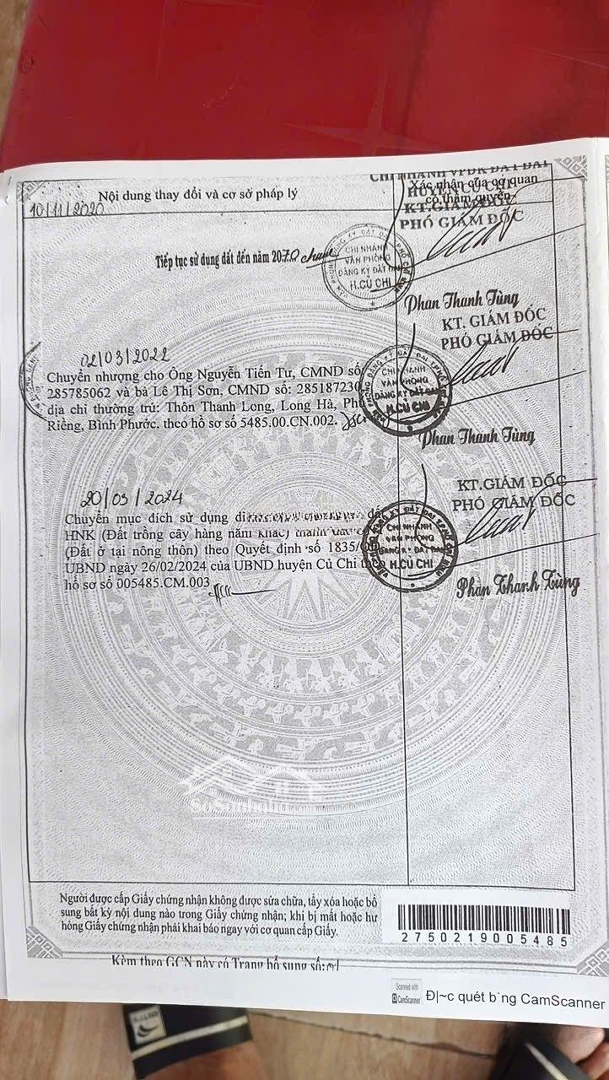 CHI NHÁNH VPĐK ĐẤT ĐAI
HUYỆN CỦ CHI
Nội dung thay đổi và cơ sở pháp lý
Xác nhận của cơ quan
có thẩm quyền
KT.GIÁM ĐỐC
PHÓ GIÁM ĐỐC
10/11/2020
Tiếp tục sử dụng đất đến năm 2070
CHI NHÁNH
VĂN PHÒNG
ĐĂNG KÝ ĐẤT ĐAI
H.CỦ CHI
Phan Thanh Tùng
KT. GIÁM ĐỐC
PHÓ GIÁM ĐỐC
02/03/2022
Chuyển nhượng cho Ông Nguyễn Tiến Tư, CMND số
285785062 và bà Lê Thị Sơn, CMND số: 285187230
địa chỉ thường trú: Thôn Thanh Long, Long Hà, Phú
Riềng, Bình Phước. theo hồ sơ số 5485.00.CN.002.
CHI NHÁNH
VĂN PHÒNG
ĐĂNG KÝ ĐẤT ĐAI
H.CỦ CHI
Phan Thanh Tùng
KT.GIÁM ĐỐC
PHÓ GIÁM ĐỐC
20/03/2024
Chuyển mục đích sử dụng
HNK (Đất trồng cây hàng năm khác) thành
(Đất ở tại nông thôn) theo Quyết định số 1835/
UBND ngày 26/02/2024 của UBND huyện Củ Chi theo
hồ sơ số 005485.CM.003
CHI NHÁNH
VĂN PHÒNG
ĐĂNG KÝ ĐẤT ĐAI
H.CỦ CHI
Phan Thanh Tùng
SoSonhadat
Người được cấp Giấy chứng nhận không được sửa chữa, tẩy xóa hoặc bổ
sung bất kỳ nội dung nào trong Giấy chứng nhận; khi bị mất hoặc hư
hỏng Giấy chứng nhận phải khai báo ngay với cơ quan cấp Giấy.
2750219005485
Kèm theo GCN này có Trang bổ sung số:01
Scanned with
CamScanner
Đ|~c quét b`ng CamScanner